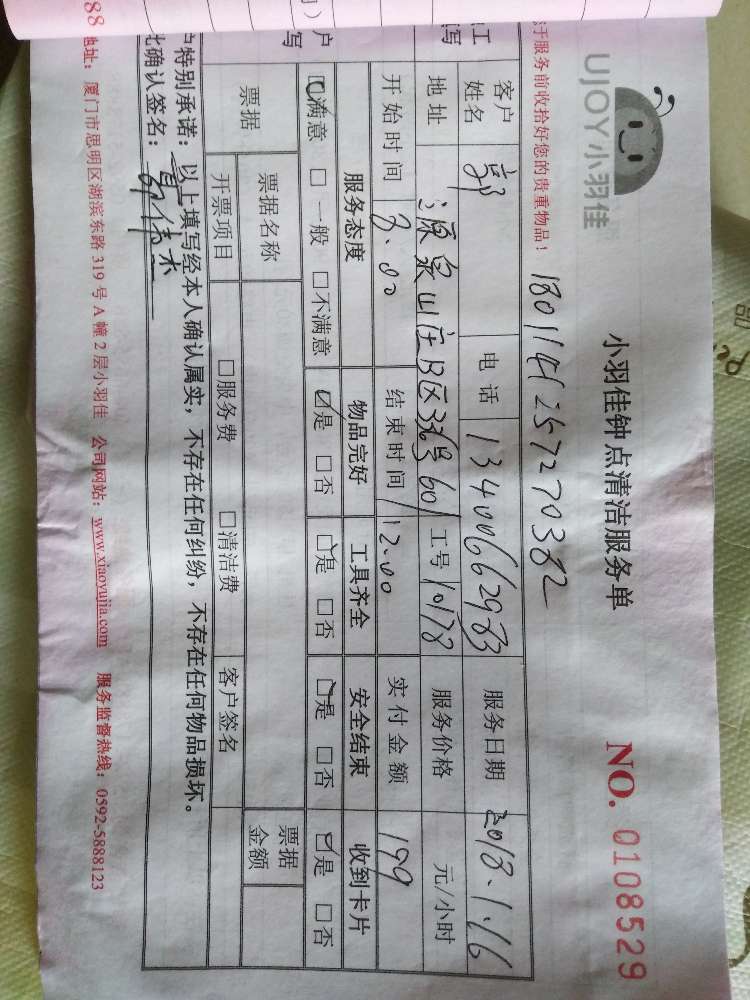 UJOY小羽佳
小羽佳钟点清洁服务单
NO. 0108529
于服务前收拾好您的贵重物品！
1801141257270382
工
写
客户姓名 郭 电话 13400662983 服务日期 2018.1.16
地址 源泉山庄B区336号601 工号 10178 服务价格 元/小时
开始时间 8.00 结束时间 12.00 实付金额 199
户
写
服务态度 物品完好 工具齐全 安全结束 收到卡片
☑满意 □一般 □不满意 ☑是 □否 ☑是 □否 ☑是 □否 ☑是 □否
票据 票据名称 票据金额
开票项目 □服务费 □清洁费 客户签名
户特别承诺：以上填写经本人确认属实，不存在任何纠纷，不存在任何物品损坏。
此确认签名：
88 地址：厦门市思明区湖滨东路 319 号 A 幢 2 层小羽佳 公司网站：www.xiaoyujia.com 服务监督热线：0592-5888123